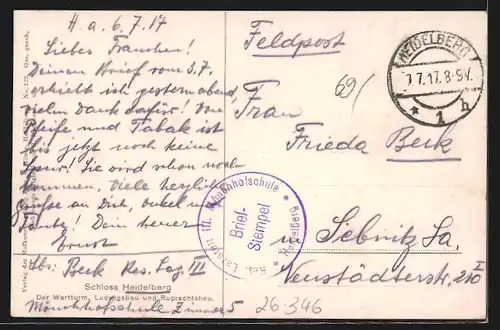 H. a. 6.7.17
Liebes Frauchen!
Deinen Brief vom 3.7.
erhielt ich gestern abend,
vielen Dank dafür! Von
Pfeife und Tabak ist
bis jetzt noch keine
Spur. Sie wird schon noch
kommen. Viele herzliche
Grüße an Dich, Onkel und
Tante! Dein treuer
Ernst
Abs: Beck Res. Laz. III
Schloss Heidelberg
Der Wartturm, Ludwigsbau und Ruprechtsbau.
Mönchhofschule Zimmer 5
Verlag der
No. 122. Ges. gesch.
Feldpost
69/
HEIDELBERG
7.7.17. 8-9V.
* 1 h
Frau
Frieda Beck
in Sebnitz Sa.
Neustädterstr. 210 I
Res. Lazarett III. Mönchhofschule
Heidelberg
Brief-
Stempel
26-346